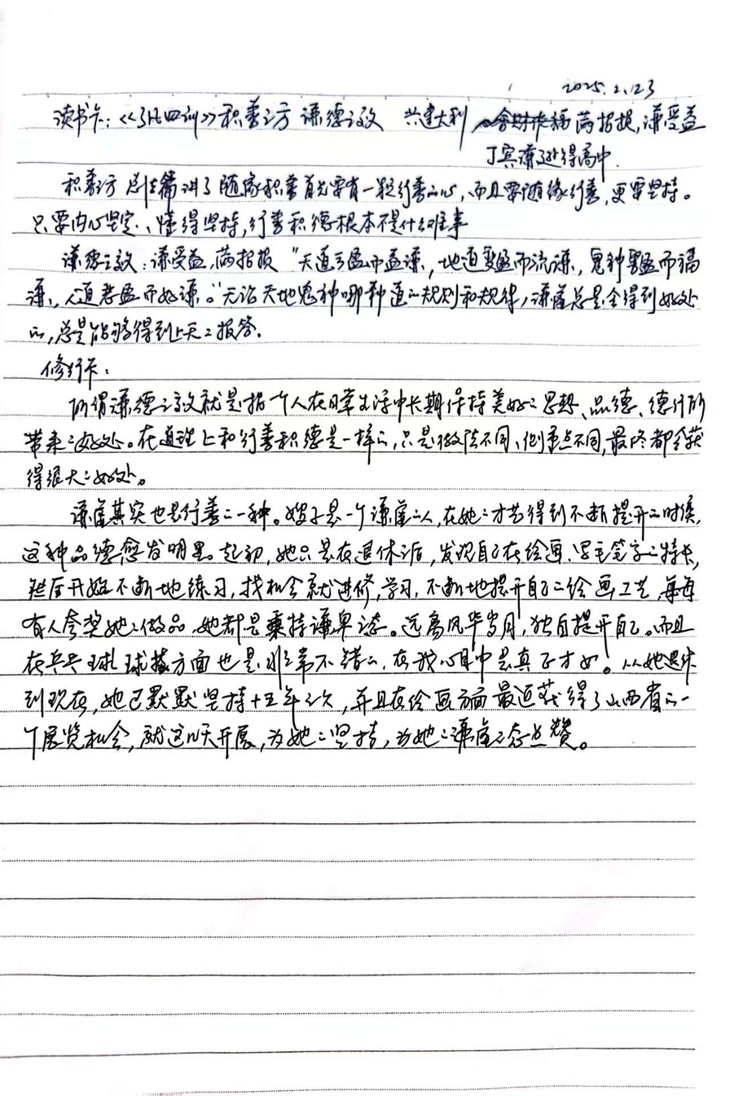 2025.2.23
读书卡：《了凡四训》积善之方 谦德之效 兴建大利 满招损，谦受益
丁宾谦逊得高中.
积善之方 讲了随缘积善首先要有一颗行善的心，而且要随缘行善，更要坚持。
只要内心坚定、懂得坚持，行善积德根本不是什么难事
谦德之效：谦受益，满招损 “天道亏盈而益谦，地道变盈而流谦，鬼神害盈而福
谦，人道恶盈而好谦。”无论天地鬼神哪种道的规则和规律，谦虚总是会得到好处
的，总是能够得到上天的报答.
修行卡：
所谓谦德之效就是指一个人在日常生活中长期保持美好的思想、品德、德行所
带来的好处。在道理上和行善积德是一样的，只是做法不同、侧重点不同，最终都会获
得很大的好处。
谦虚其实也是行善的一种。嫂子是一个谦虚的人，在她的才艺得到不断提升的时候，
这种品德愈发明显。起初，她只是在退休后，发现自己在绘画、的特长，
然后开始不断地练习，找机会就进修，学习，不断地提升自己的绘画工艺，每每
有人夸奖她的做品，她都是秉持谦卑之态。远离风华岁月，独自提升自己。而且
在乒乓球、球技方面也是非常不错的，在我心目中是真正才女。从她退休
到现在，她已默默坚持十五年之久，并且在绘画方面最近获得了山西省的一
个展览机会，就这几天开展，为她的坚持，为她的谦虚之态点赞。